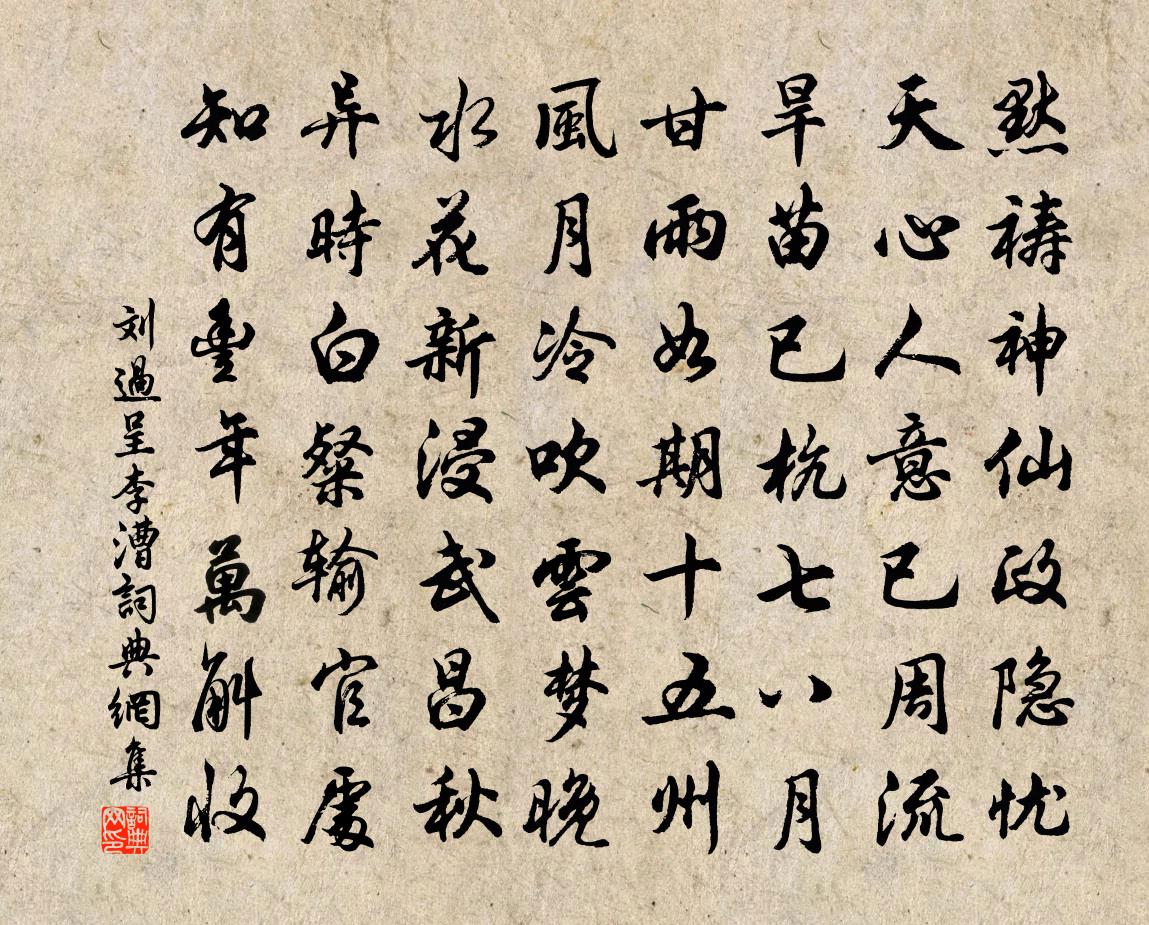 黙祷神仙政隐忧
天心人意已周流
旱苗已枕七八月
甘雨如期十五州
風月冷吹雲梦晚
水花新浸武昌秋
异時白粲输官處
知有豐年萬斛收
刘過呈李漕詞典網集
詞典
网印